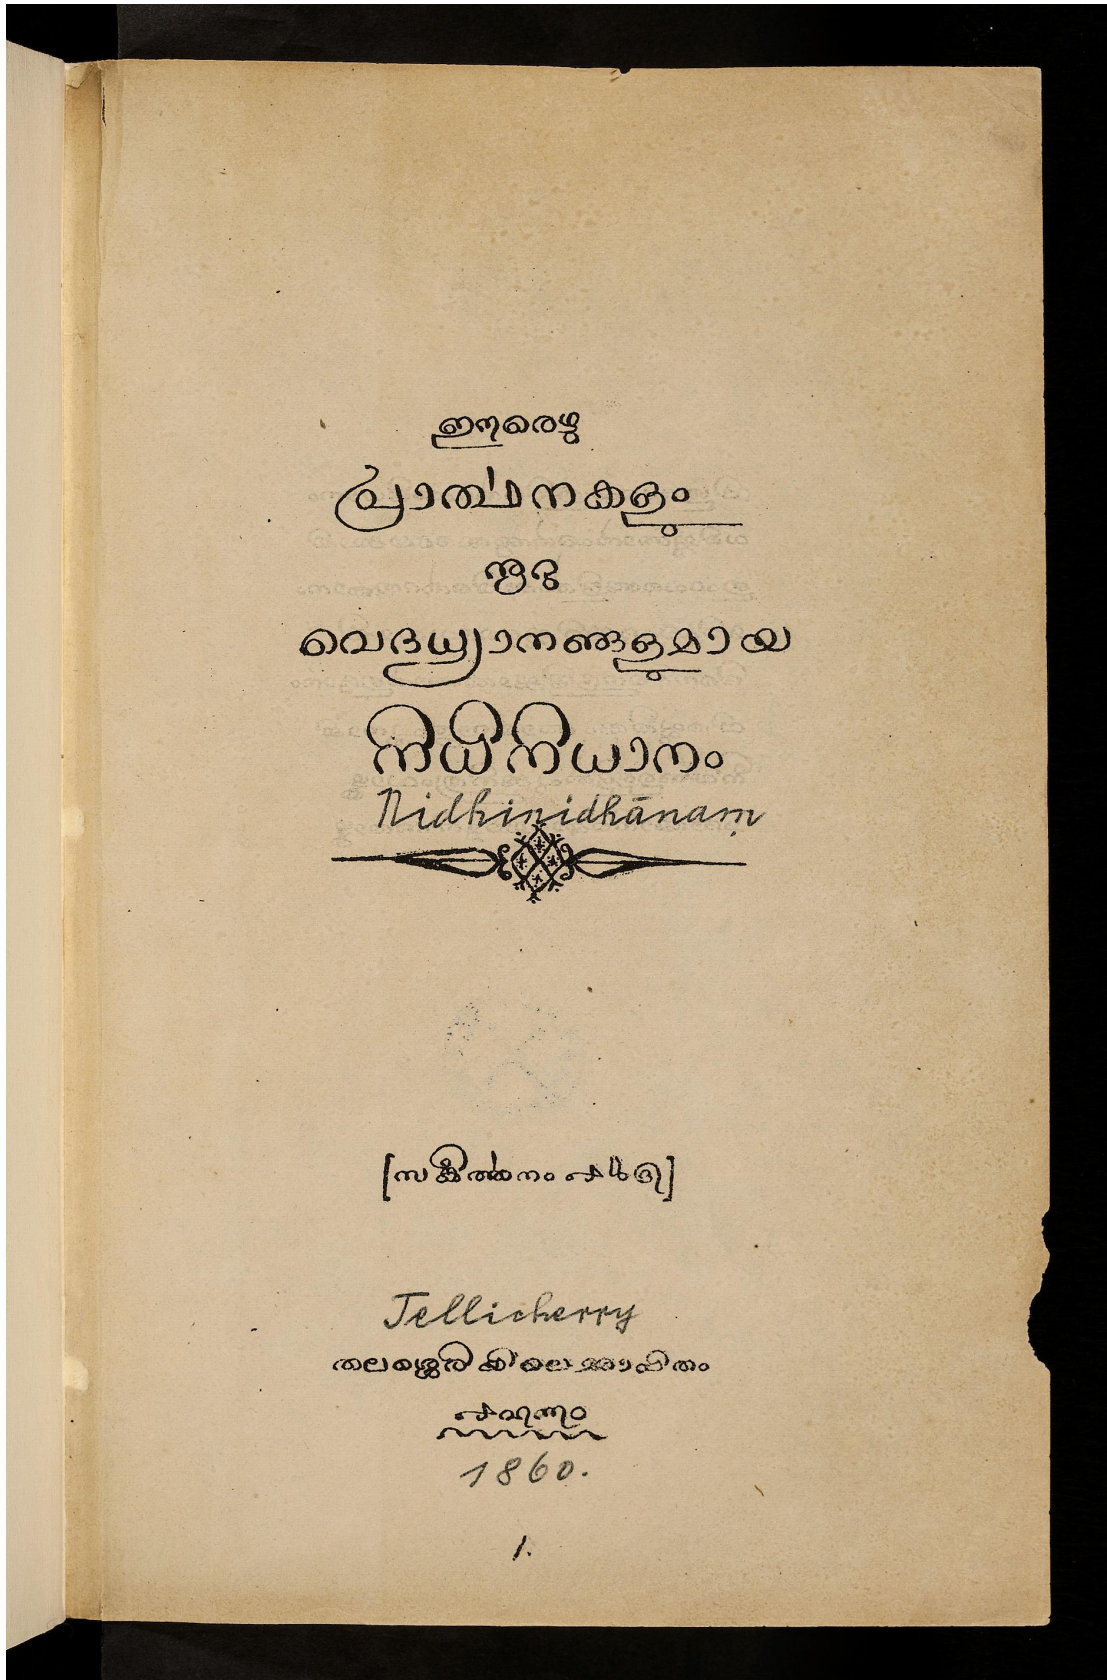 ഈരെഴു
പ്രാൎത്ഥനകളും
നൂറു
വെദധ്യാനങ്ങളുമായ
നിധിനിധാനം
Nidhinidhānaṃ
[സങ്കീൎത്തനം
Tellicherry
തലശ്ശെരിയിലെ ഛാപിതം
൧൮൬൦
1860.
1.